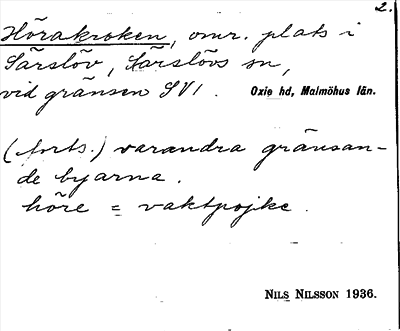 2.
Hörakroken, omr. plats i
Särslöv, Särslövs sn,
vid gränsen SV1. Oxie hd, Malmöhus län.
(forts.) varandra gränsan-
de byarna.
höre = vaktpojke.
NILS NILSSON 1936.